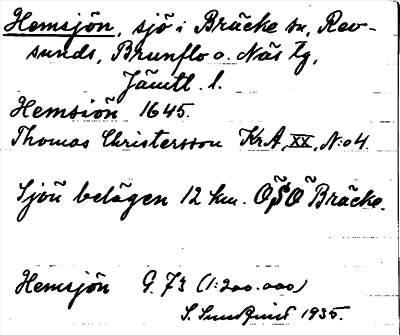 Hemsjön, sjö i Bräcke sn, Rev-
sunds, Brunflo o. Näs tg,
Jämtl. l.
Hemsiön 1645.
Thomas Christersson KrA, XX, N:o 4.
Sjön belägen 12 km. OSO Bräcke.
Hemsjön G. 73 (1:200.000)
S. Sundqvist 1935.